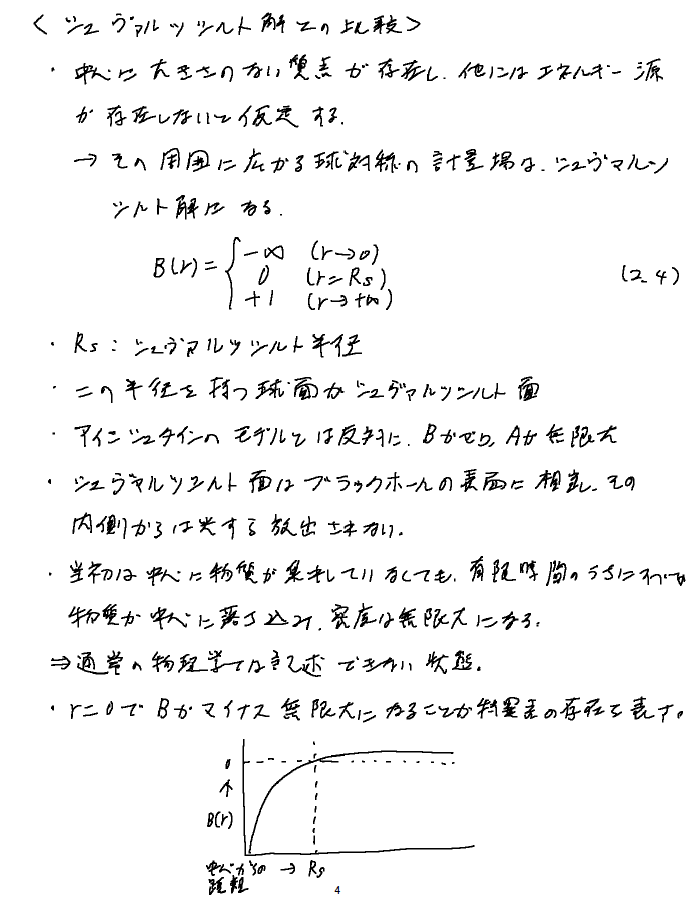 < シュヴァルツシルト解との比較 >
・中心に大きさのない質点が存在し、他にはエネルギー源
が存在しないと仮定する.
→ その周囲に広がる球対称の計量場は、シュヴァルツ
シルト解になる.
B(r) = { -∞ (r→0)
0 (r=Rs) (2.4)
+1 (r→+∞)
・Rs : シュヴァルツシルト半径
・この半径を持つ球面がシュヴァルツシルト面
・アインシュタインのモデルとは反対に、Bがゼロ、Aが無限大
・シュヴァルツシルト面はブラックホールの表面に相当し、その
内側からは光すら放出されない.
・当初は中心に物質が集中していなくても、有限時間のうちにすべての
物質が中心に落ち込み、密度は無限大になる.
⇒ 通常の物理学では記述できない状態.
・r=0でBがマイナス無限大になることが特異点の存在を表す.
0
↑
B(r)
中心からの → Rs
距離
4